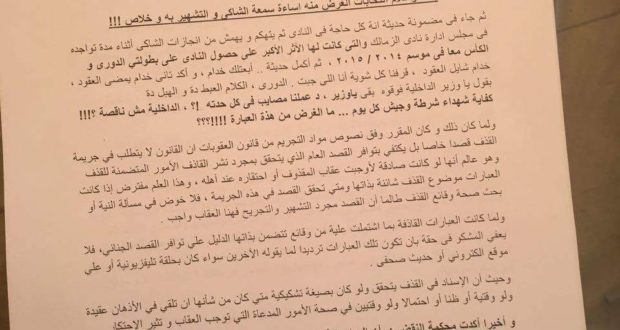 انتخابات الغرض منه اساءة سمعة الشاكى و التشهير به و خلاص !!!
ثم جاء فى مضمونة حديثة انه كل حاجة فى النادى ثم يتهكم و يهمش من انجازات الشاكى أثناء مدة تواجده
في مجلس ادارة نادى الزمالك والتى كانت لها الأثر الأكبر على حصول النادى على بطولتي الدورى و
الكأس معا في موسم ٢٠١٤ / ٢٠١٥ ، ثم أكمل حديثة .. أبعتلك خدام ، و أكد تانى خدام يمضى العقود ،
خدام شايل العقود ، قرفنا كل شوية أنا اللي جبت . الدورى ، الكلام العبط دة و الهبل دة
بقول يا وزير الداخلية فوقوه بقي ياوزير ، د عملنا مصايب فى كل حدته !؟ ، الداخلية مش ناقصة ؟!!!
كفاية شهداء شرطة وجيش كل يوم ... ما الغرض من هذة العبارة !!!!؟؟؟؟
ولما كان ذلك و كان المقرر وفق نصوص مواد التجريم من قانون العقوبات ان القانون لا يتطلب في جريمة
القذف قصدا خاصا بل يكتفي بتوافر القصد العام الذي يتحقق بمجرد نشر القاذف الأمور المتضمنة للقذف
وهو عالم أنها لو كانت صادقة لأوجبت عقاب المقذوف أو احتقاره عند أهله ، وهذا العلم مفترض إذا كانت
العبارات موضوع القذف شائنة بذاتها ومتي تحقق القصد في هذه الجريمة ، فلا خوض في مسألة النية أو
بحث صحة وقائع القذف طالما أن القصد مجرد التشهير والتجريح فهنا العقاب واجب .
ولما كانت العبارات القاذفة بما اشتملت علية من وقائع تتضمن بذاتها الدليل علي توافر القصد الجنائي، فلا
يعفي المشكو في حقة بان تكون تلك العبارات ترديدا لما يقوله الآخرين سواء كان بحلقة تليفزيونية أو علي
موقع الكتروني أو حديث صحفى .
وحيث أن الإسناد في القذف يتحقق ولو كان بصيغة تشكيكية متي كان من شأنها ان تلقي في الأذهان عقيدة
ولو وقتية أو ظنا أو احتمالا ولو وقتيين في صحة الأمور المدعاة التي توجب العقاب و تثير الإحتكار
و أخيرا أكدت محكمة النقض